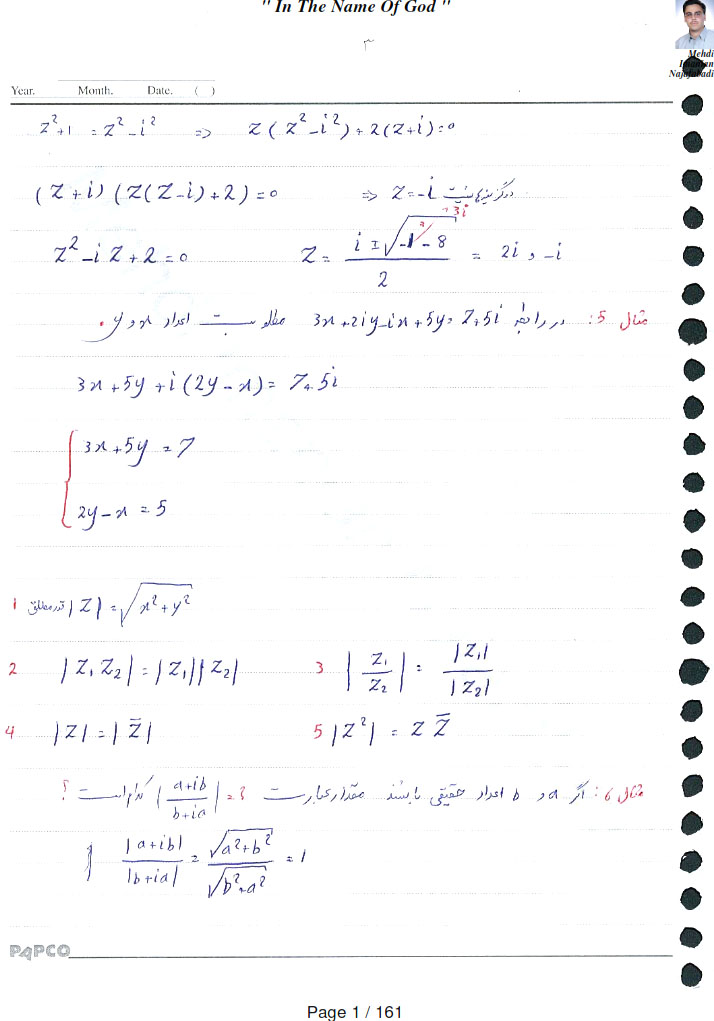 " In The Name Of God "
۳
Mehdi
Najafabadi
Year. Month. Date. ( )
z²+1 = z²-i² => z(z²-i²)+2(z+i)=0
(z+i)(z(z-i)+2)=0 => z=-i در گزینه‌ها نیست
+3i
z²-iz+2=0 z = (i±√(-1-8))/2 = 2i و -i
مثال 5: در رابطه 3x+2iy-ix+5y=7+5i مطلوبست اعداد x و y.
3x+5y+i(2y-x)=7+5i
{ 3x+5y=7
2y-x=5
1 قدر مطلق |z|=√(x²+y²)
2 |z₁z₂|=|z₁||z₂| 3 |z₁/z₂| = |z₁|/|z₂|
4 |z|=|z̄| 5 |z²| = z z̄
مثال 6: اگر a و b اعداد حقیقی باشند مقدار عبارت ?=|(a+ib)/(b+ia)| کدام است؟
|a+ib|/|b+ia| = √(a²+b²)/√(b²+a²) = 1
PAPCO
Page 1 / 161